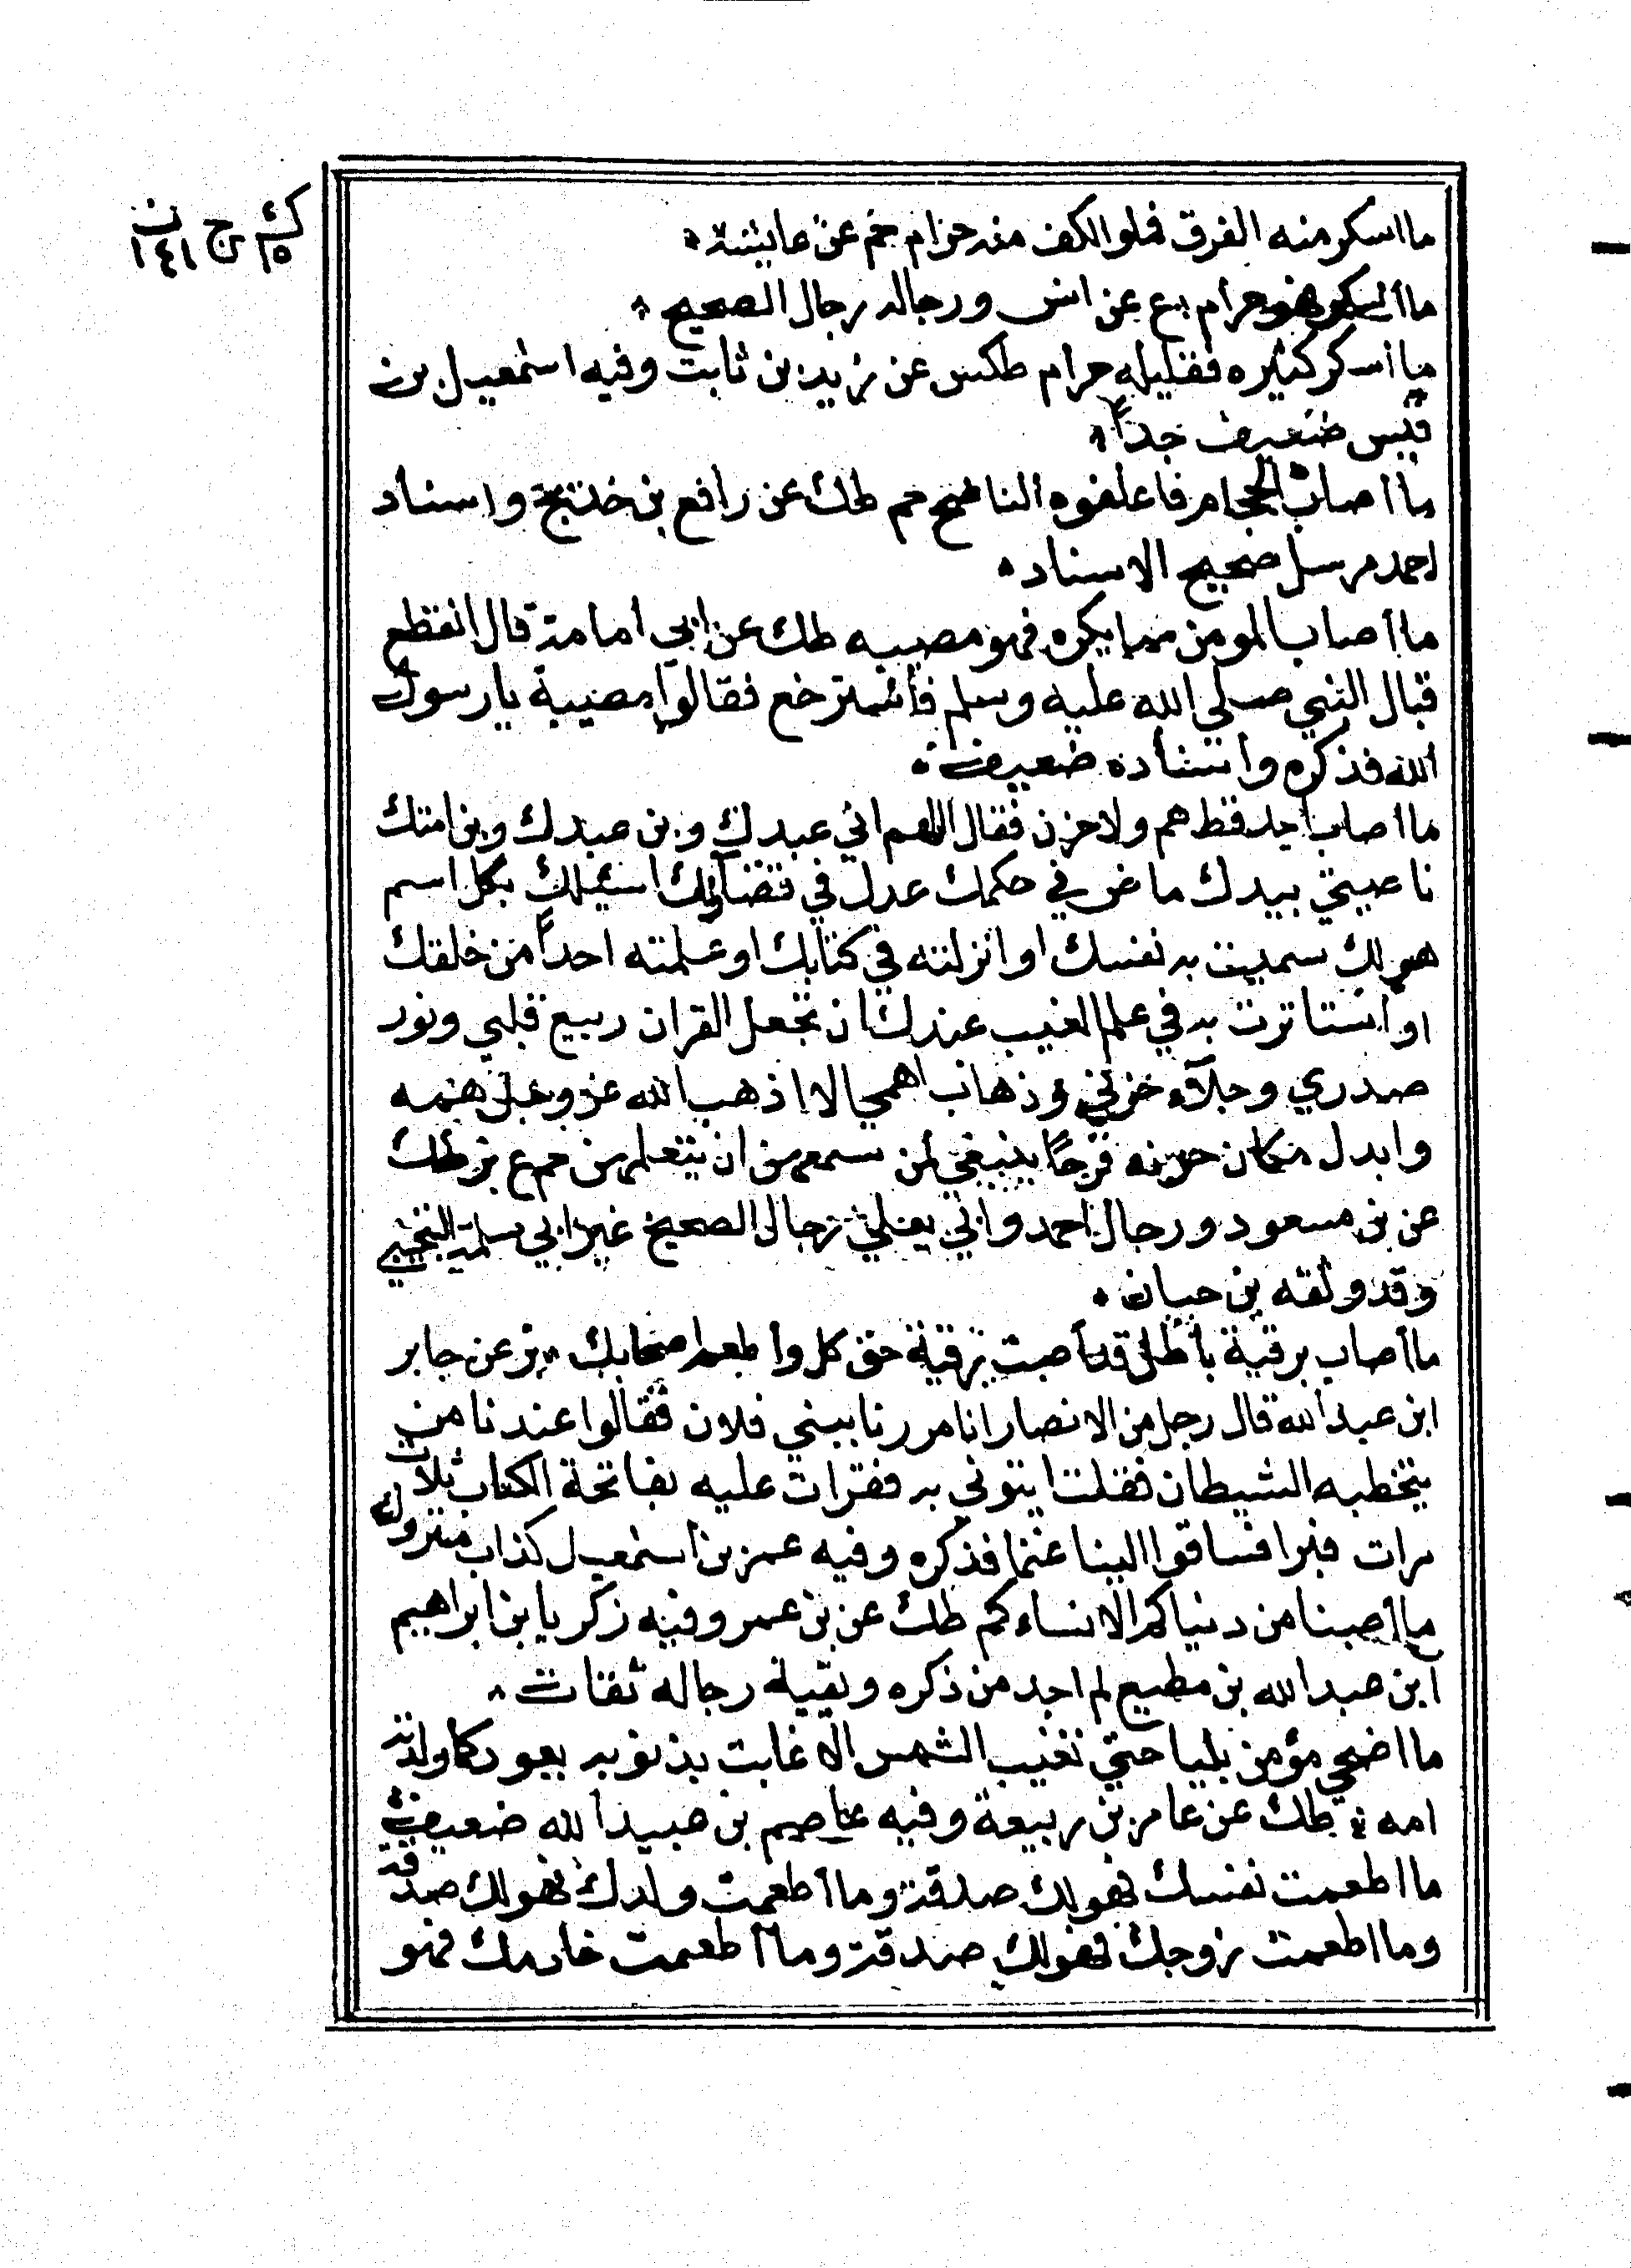 ك ج ن
١٥ ١٤١
ما اسكر منه الفرق فملو الكف منه حرام حم عن عايشة
ما اسكر فهو حرام بع عن انس ورجاله رجال الصحيح
ما اسكر كثيره فقليله حرام طكس عن زيد بن ثابت وفيه اسمعيل بن
قيس ضعيف جداً
ما اصاب الحجام فاعلفوه الناضح حم طك عن رافع بن خديج واسناد
احمد مرسل صحيح الاسناد
ما اصاب المومن مما يكره فهو مصيبه طك عن ابي امامة قال انقطع
قبال النبي صلي الله عليه وسلم فاسترجع فقالوا مصيبة يا رسول
الله فذكره واسناده ضعيف
ما اصاب احد قط هم ولا حزن فقال اللهم اني عبدك وبن عبدك وبن امتك
ناصيتي بيدك ماض في حكمك عدل في قضآئك اسئلك بكل اسم
هو لك سميت به نفسك او انزلته في كتابك او علمته احداً من خلقك
او استاثرت به في علم الغيب عندك ان تجعل القران ربيع قلبي ونور
صدري وجلآء حزني وذهاب همي الا اذهب الله عز وجل همه
وابدل مكان حزنه فرجًا ينبغي لمن سمعهن ان يتعلمهن حم ع بز طك
عن بن مسعود ورجال احمد وابي يعلي رجال الصحيح غير ابي سلمة الجهني
وقد وثقه بن حبان
ما اصاب برقية باطل قد اصبت برقية حق كل واطعم اصحابك بز عن جابر
ابن عبد الله قال رجل من الانصار انا مررنا ببني فلان فقالوا عندنا من
يتخطبه الشيطان فقلت ايتوني به فقرات عليه بفاتحة الكتاب ثلاث
مرات فبرا فساقوا الينا غنما فذكره وفيه عمر بن اسمعيل كذاب متروك
ما اصبنا من دنياكم الا نساءكم طك عن بن عمر وفيه زكريا بن ابراهيم
ابن عبد الله بن مطيع لم اجد من ذكره وبقية رجاله ثقات
ما اضحي مؤمن يلبيا حتي تغيب الشمس الا غابت بذنوبه يعود كما ولدته
امه طك عن عامر بن ربيعة وفيه عاصم بن عبيد الله ضعيف
ما اطعمت نفسك فهو لك صدقة وما اطعمت ولدك فهو لك صدقة
وما اطعمت زوجك فهو لك صدقة وما اطعمت خادمك فهو